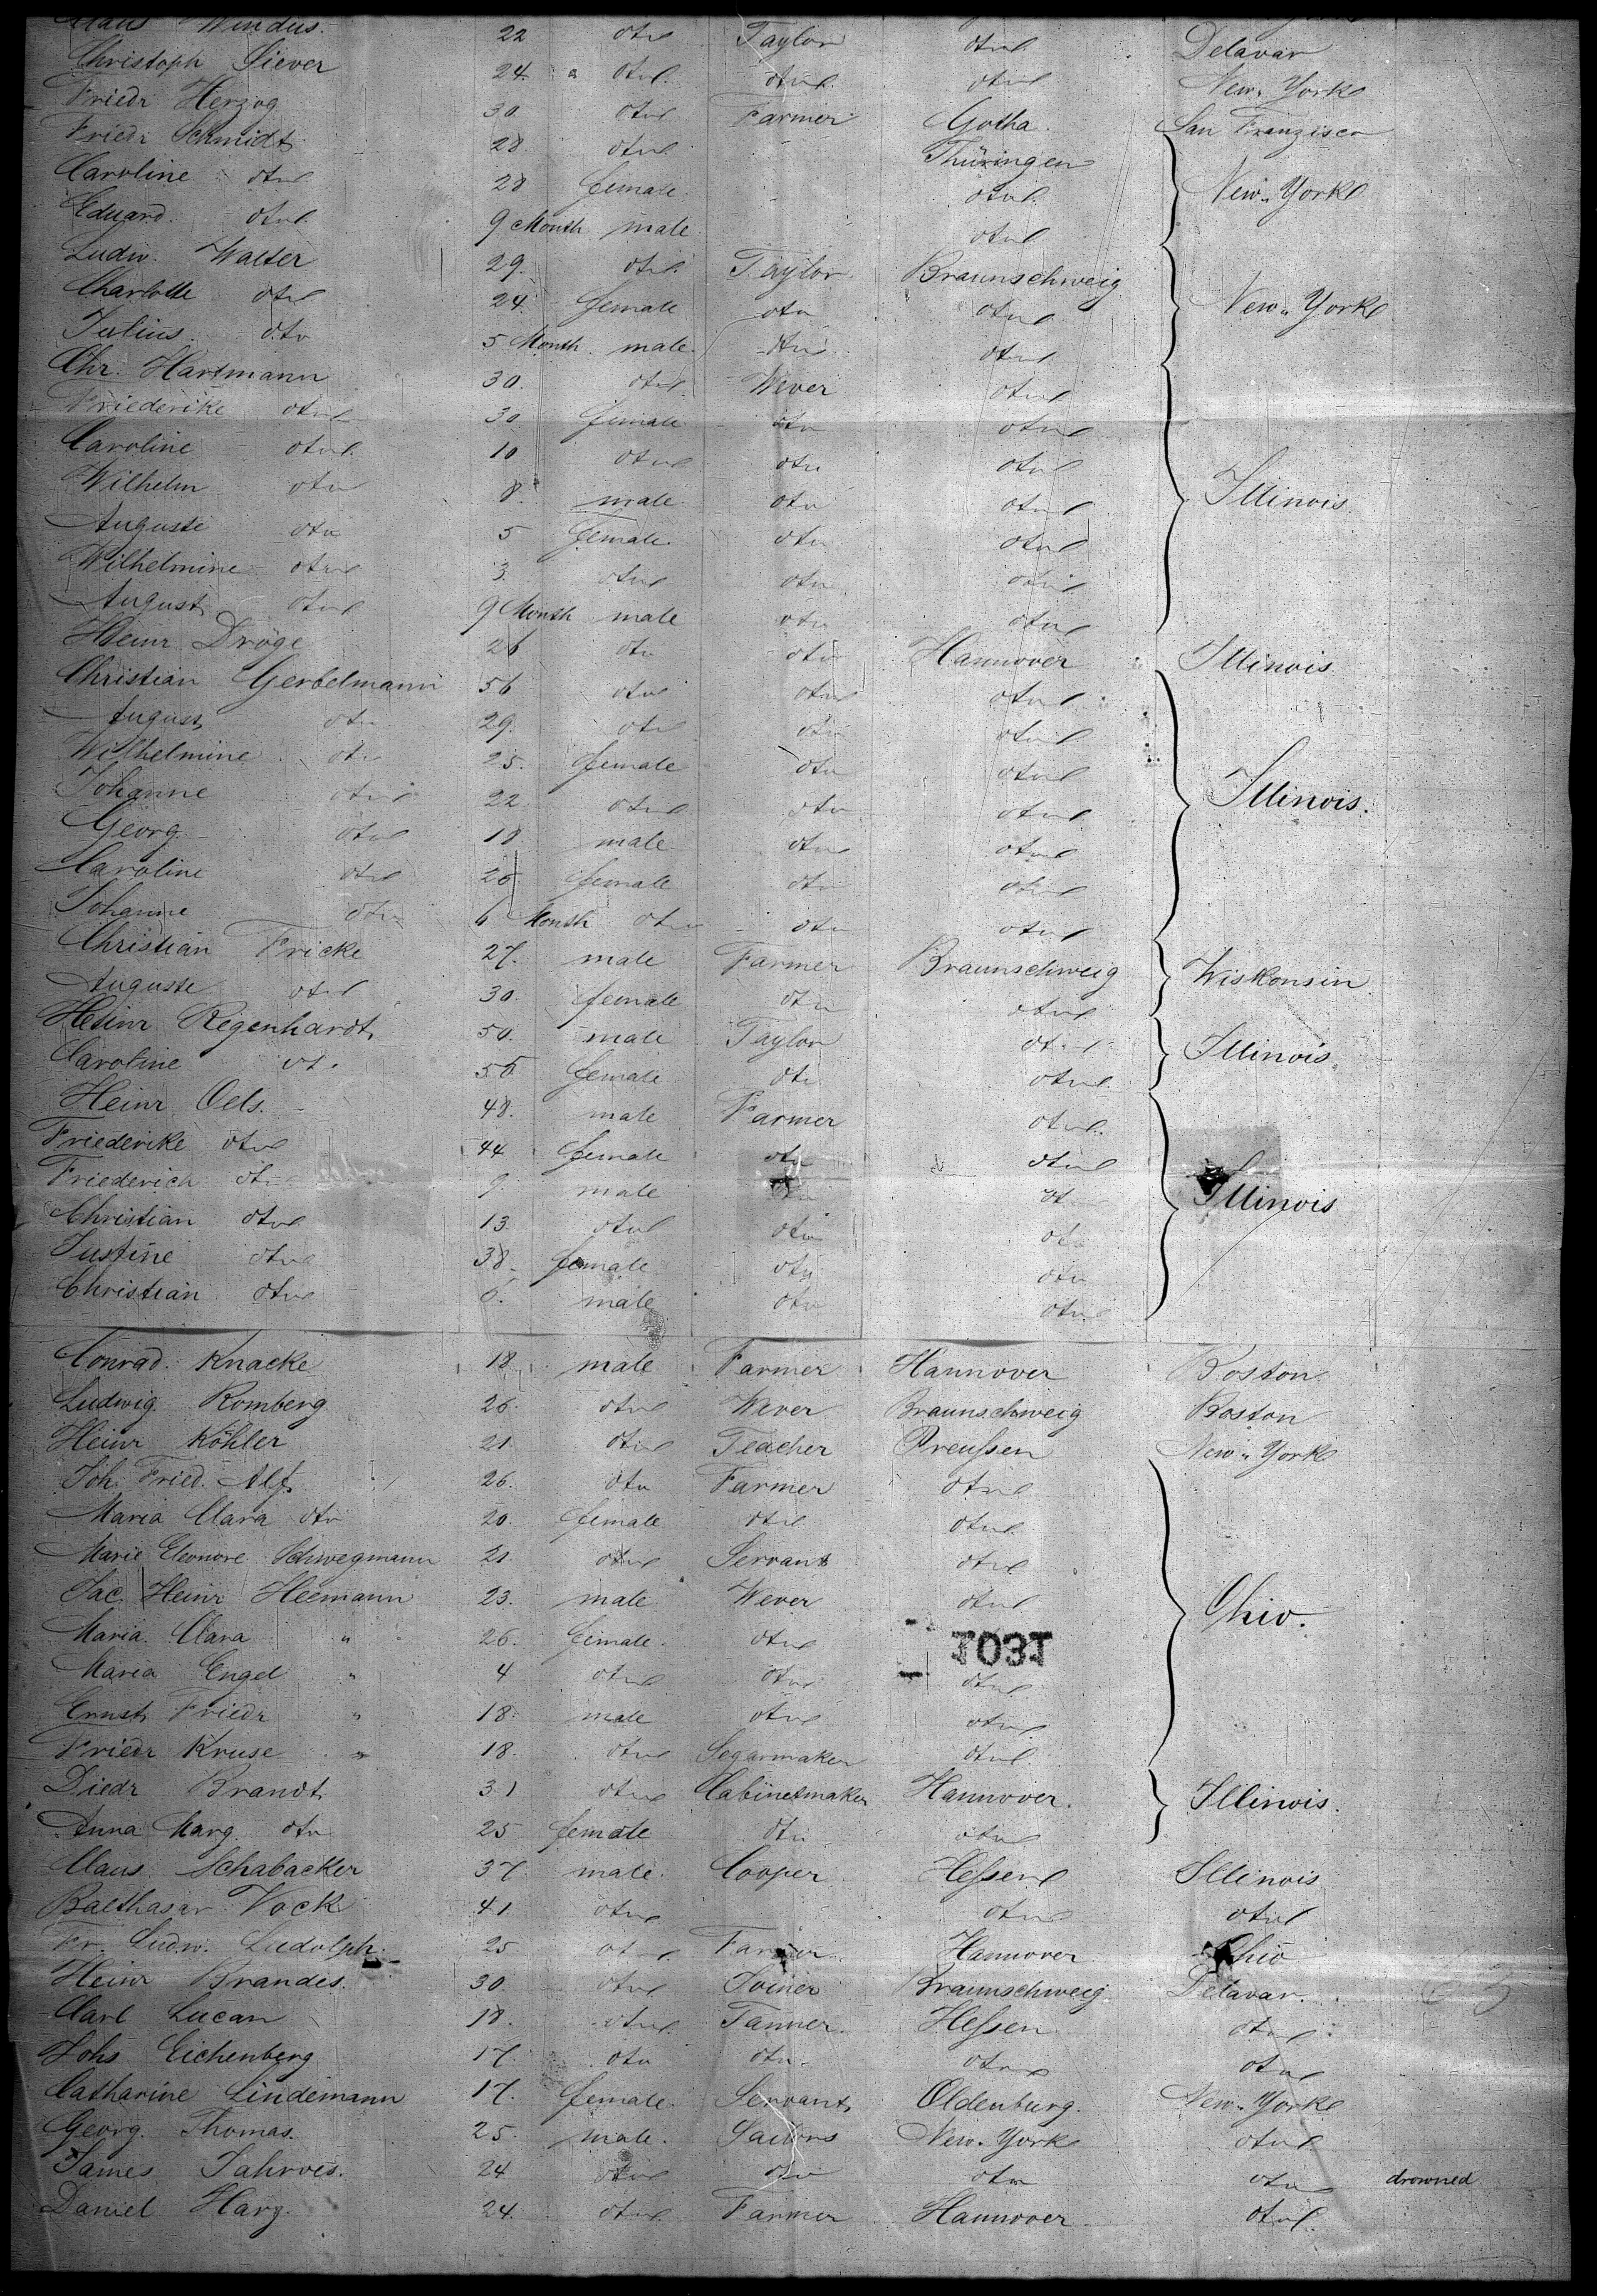 Claus Windus. 22 dto Taylor dto Delavar
Christoph Siever 24. dto dto dto New-York
Friedr Herzog 30 dto Farmer Gotha San Franzisco
Friedr Schmidt 28 dto Thüringen
Caroline dto 28 female dto New-York
Eduard dto 9 Month male dto
Ludw. Walter 29. dto Taylor Braunschweig
Charlotte dto 24 female dto dto New-York
Julius dto 5 Month male dto dto
Chr. Hartmann 30. dto Wever dto
Friederike dto 30 female dto dto
Caroline dto 10 dto dto dto
Wilhelm dto 8. male dto dto Illinois
Auguste dto 5 female dto dto
Wilhelmine dto 3 dto dto dto
August dto 9 Month male dto dto
Heinr Dröge 26 dto dto Hannover Illinois
Christian Gerbelmann 56 dto dto dto
August dto 29. dto dto dto
Wilhelmine dto 25. female dto dto
Johanne dto 22 dto dto dto Illinois.
Georg dto 18 male dto dto
Caroline dto 26 female dto dto
Johanne dto 6 Month dto dto dto
Christian Fricke 27. male Farmer Braunschweig Wiskonsin
Auguste dto 30 female dto dto
Heinr Regenhardt 50. male Taylor dto Illinois
Caroline dt. 56 female dto dto
Heinr Oels. 48. male Farmer dto
Friederike dto 44 female dto dto
Friederich dto 9 male dto dto Illinois
Christian dto 13 dto dto dto
Justine dto 38. female dto dto
Christian dto 6. male dto dto
Conrad Knacke 18 male Farmer Hannover Boston
Ludwig Romberg 26. dto Wever Braunschweig Boston
Heinr Köhler 21 dto Teacher Preussen New-York
Joh. Fried. Alf 26. dto Farmer dto
Maria Clara dto 20. female dto dto
Marie Eleonore Schwegmann 21. dto Servant dto
Jac. Heinr Heemann 23. male Wever dto Ohio.
Maria Clara " 26. female dto
Maria Engel " 4 dto dto dto
Ernst Friedr " 18. male dto dto
Friedr Kruse " 18. dto Segarmaker dto
Diedr Brandt 31 dto Cabinetmaker Hannover. Illinois.
Anna Marg. dto 25 female dto dto
Claus Schabacker 37 male. Cooper Hessen Illinois
Balthasar Vock 41. dto dto dto
Fr. Ludw. Ludolph. 25 dto Farmer Hannover Ohio
Heinr Brandes. 30. dto Joiner Braunschweig Delavar.
Carl Lucan 18. dto Tanner. Hessen dto
Johs Eichenberg 17. dto dto dto dto
Catharine Lindemann 17. female Servant Oldenburg. New-York
Georg. Thomas. 25. male. Sailors New-York dto
James Jahrves. 24 dto dto dto dto drowned
Daniel Harg. 24. dto Farmer Hannover dto